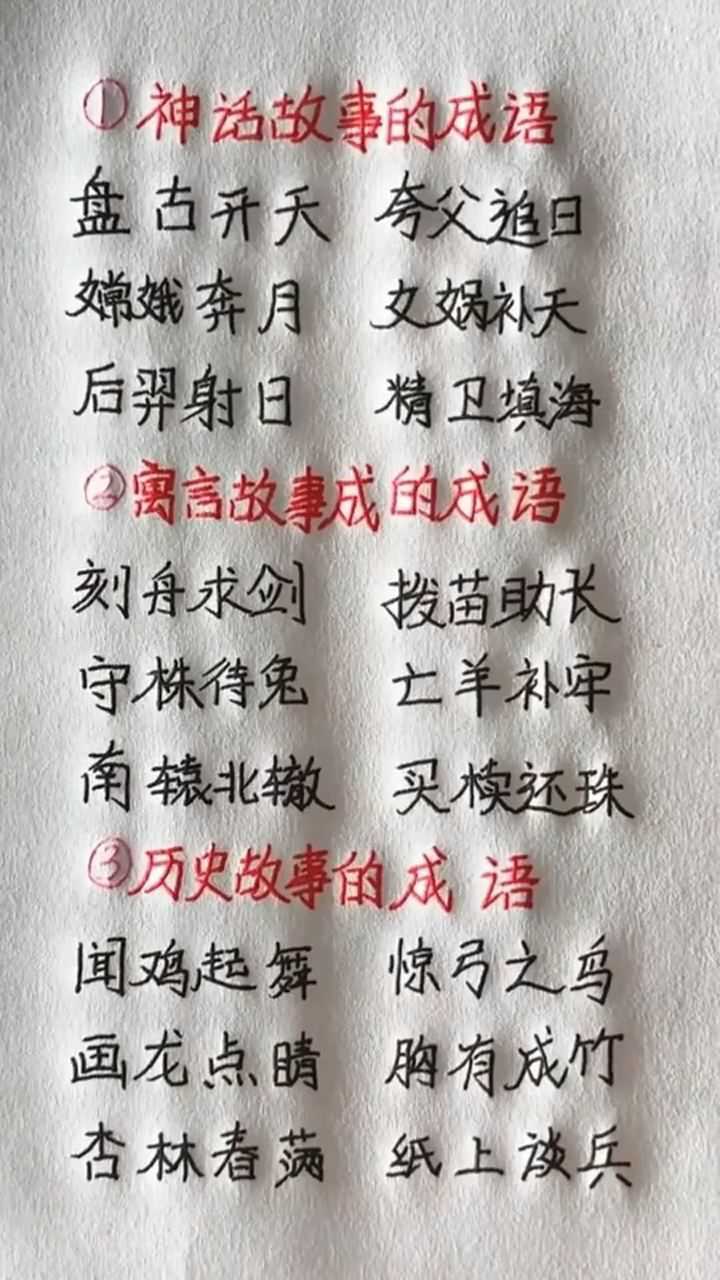 ①神话故事的成语
盘古开天 夸父追日
嫦娥奔月 女娲补天
后羿射日 精卫填海
②寓言故事成的成语
刻舟求剑 拨苗助长
守株待兔 亡羊补牢
南辕北辙 买椟还珠
③历史故事的成语
闻鸡起舞 惊弓之鸟
画龙点睛 胸有成竹
杏林春满 纸上谈兵